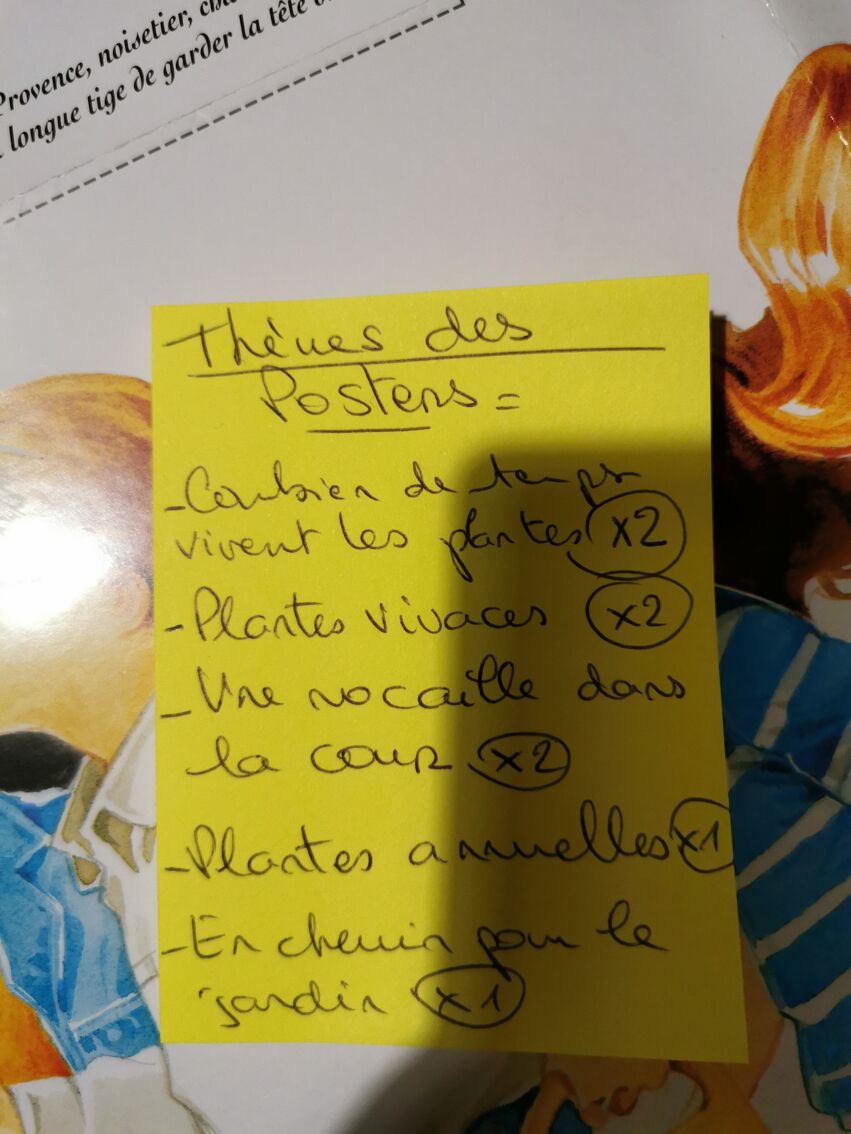 Provence, noisetier,
longue tige de garder la tête
Thèmes des
Posters =
- Combien de temps
vivent les plantes x2
- Plantes vivaces x2
- Une rocaille dans
la cour x2
- Plantes annuelles x1
- En chemin pour le
jardin x1